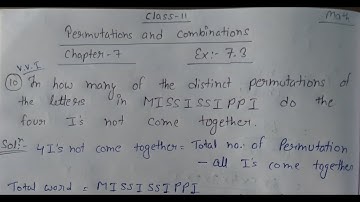 Class-11
Math
Permutations and combinations
Chapter-7 Ex:- 7.3
V.V.I
(10) In how many of the distinct permutations of
the letters in MISSISSIPPI do the
four I's not come together.
Sol:- 4 I's not come together = Total no. of Permutation
- all I's come together
Total word = MISSISSIPPI